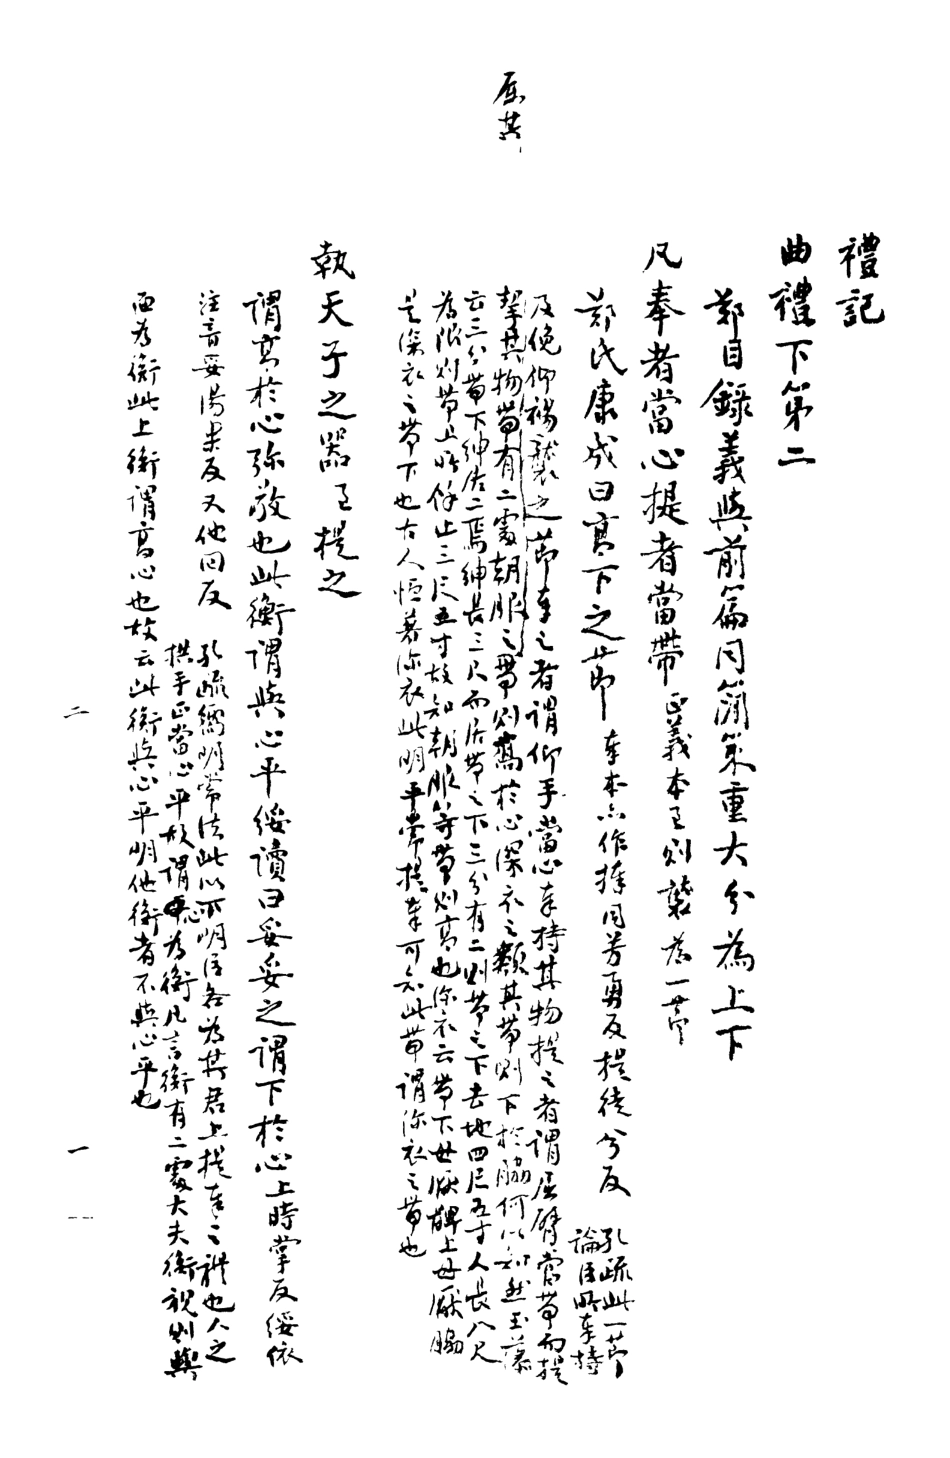 屈其
禮記
曲禮下第二
鄭目錄義與前篇同簡策重大分為上下
凡奉者當心提者當帶 正義本至則襲為一節
鄭氏康成曰高下之節 奉本亦作捧同芳勇反提徒兮反 孔疏此一節
論臣所奉持
及俛仰裼襲之節奉之者謂仰手當心奉持其物提之者謂屈臂當帶而提
挈其物帶有二處朝服之帶則高於心深衣之類其帶則下於脇何以知然玉藻
云三分帶下紳居二焉紳長三尺而居帶之下三分有二則帶之下去地四尺五寸人長八尺
為限則帶上所餘止三尺五寸故知朝服等帶則高也深衣云帶下毋厭髀上毋厭脇
是深衣之帶下也古人恒著深衣此明平常提奉可知此帶謂深衣之帶也
執天子之器 至 提之
謂高於心弥敬也此衡謂與心平綏讀曰妥妥之謂下於心 上時掌反綏依
注音妥湯果反又他回反 孔疏儒明常法此以下明臣各為其君上提奉之禮也人之
拱手正當心平故謂心為衡凡言衡有二處大夫衡視則與
面為衡此上衡謂高心也故云此衡與心平明他衡者不與心平也
二
一